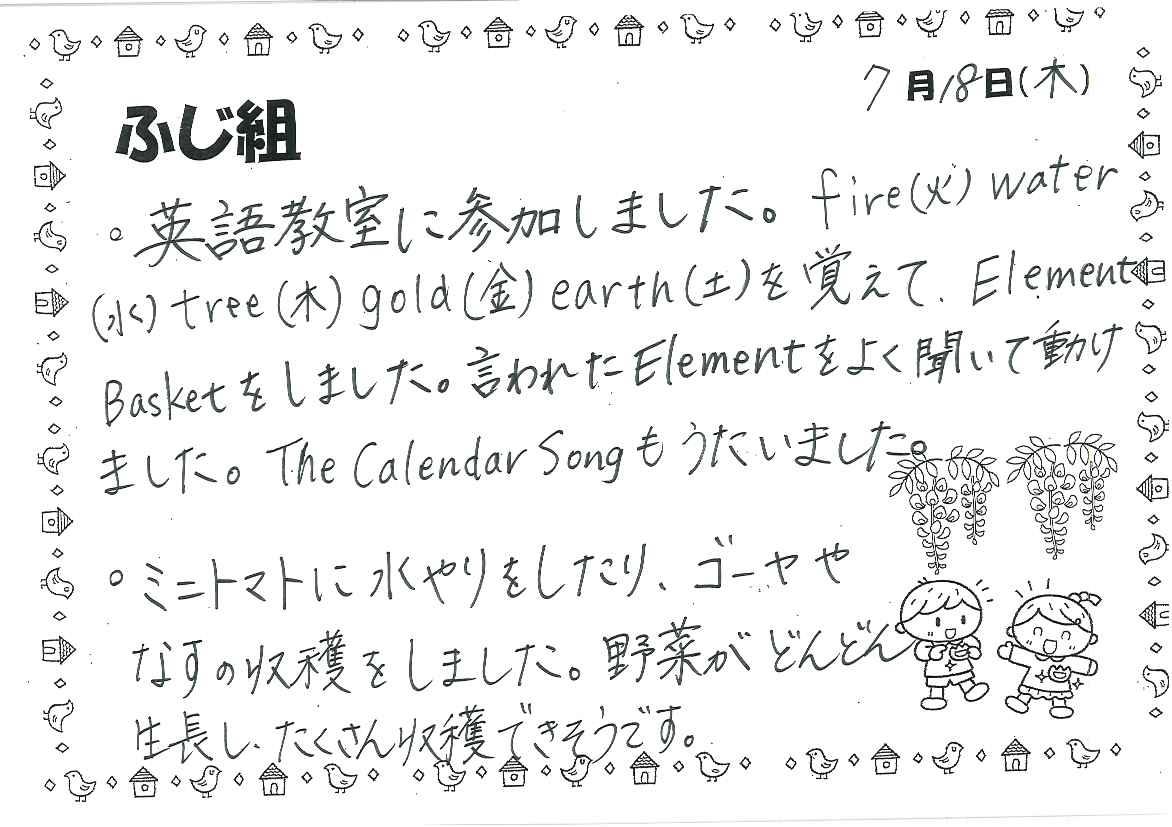 7月18日(木)
ふじ組
。英語教室に参加しました。fire(火)water
(水)tree(木)gold(金)earth(土)を覚えて、Element
Basketをしました。言われたElementをよく聞いて動け
ました。The Calendar Songもうたいました。
。ミニトマトに水やりをしたり、ゴーヤや
なすの収穫をしました。野菜がどんどん
生長し、たくさん収穫できそうです。